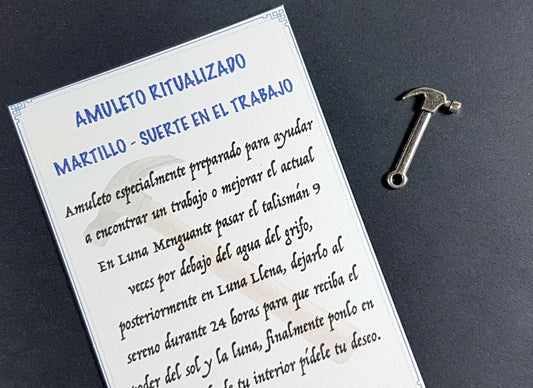 AMULETO RITUALIZADO
MARTILLO - SUERTE EN EL TRABAJO
Amuleto especialmente preparado para ayudar
a encontrar un trabajo o mejorar el actual
En Luna Menguante pasar el talismán 9
veces por debajo del agua del grifo,
posteriormente en Luna Llena, dejarlo al
sereno durante 24 horas para que reciba el
poder del sol y la luna, finalmente ponlo en
tu interior pídele tu deseo.